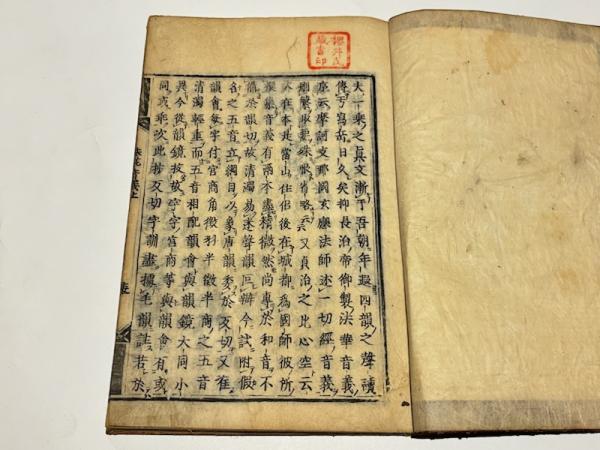 櫻井氏
藏書印
大一乘之真文漸于吾朝年邈四韻之聲讀
傳于寫訛日久矣抑長治帝御製法華音義
序云摩訶支那國玄應法師述一切經音義
繁略云云又貞治之比心空云
者在本是當山住侶後在城都為國師彼所
撰集音義有兩本盡精微然尚專於和音不
備於韻切故清濁易迷聲韻叵辯今試附假
名之五音立綱目以唐韻委於反切又準
韻會每字付宮商角徵羽半徵半商之五音
清濁輕重而五音相配韻會與韻鏡大同小
異今從韻鏡故字字宮商等與韻會有或
同或乖次此反切字謂盡據毛韻註若於
音義上